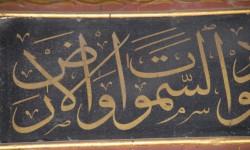 السموات والأرض